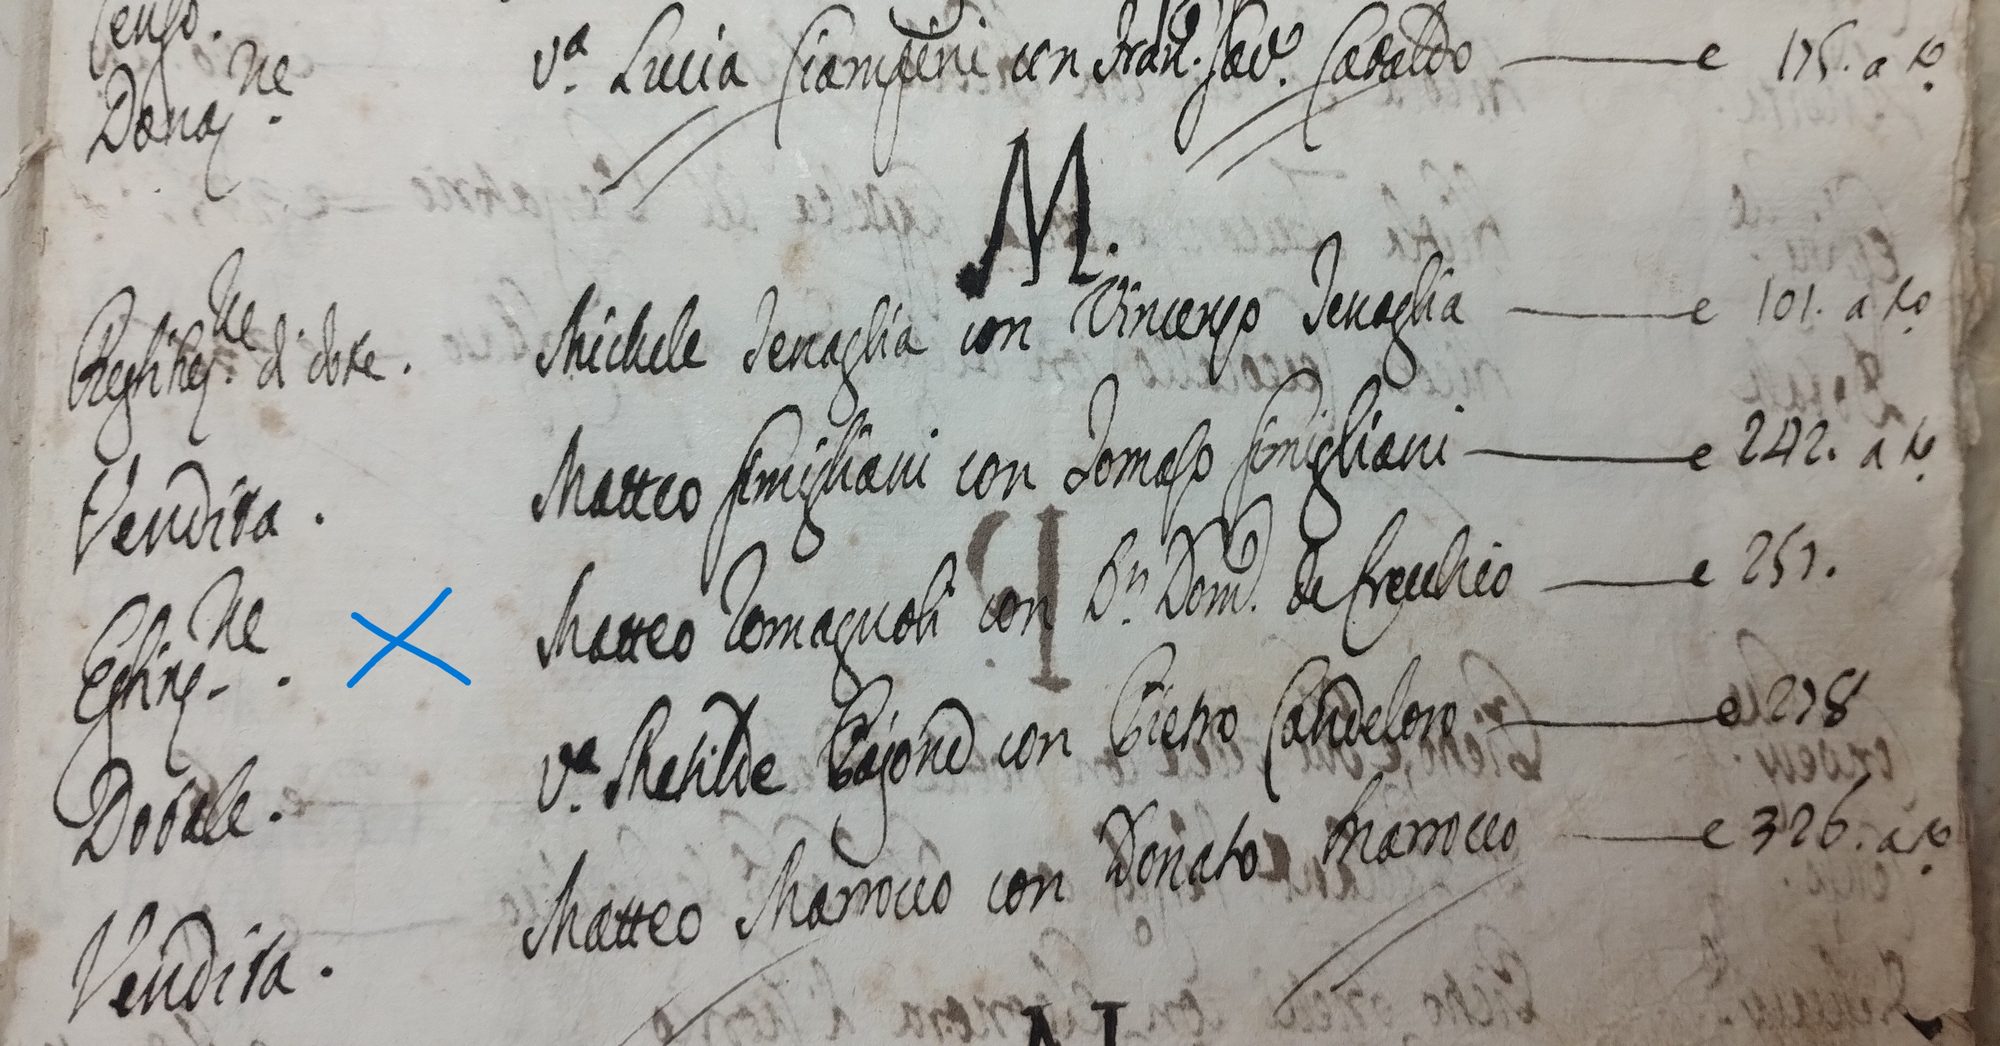 Censo.
Donaz.ne v.a Lucia Ciampini con Fran.co Sav.o Cataldo — e 175. a to
M.
Restituz.ne di dote. Michele Tenaglia con Vincenzo Tenaglia — e 101. a to
Vendita. Matteo Smigliani con Tomaso Smigliani — e 242. a to
Estinz.ne Matteo Romagnoli con D.n Dom.co de Crecchio — e 251.
Dotale. v.a Matilde con Pietro Candeloro — e 278
Vendita. Matteo Marrocco con Donato Marrocco — e 326. a to
N